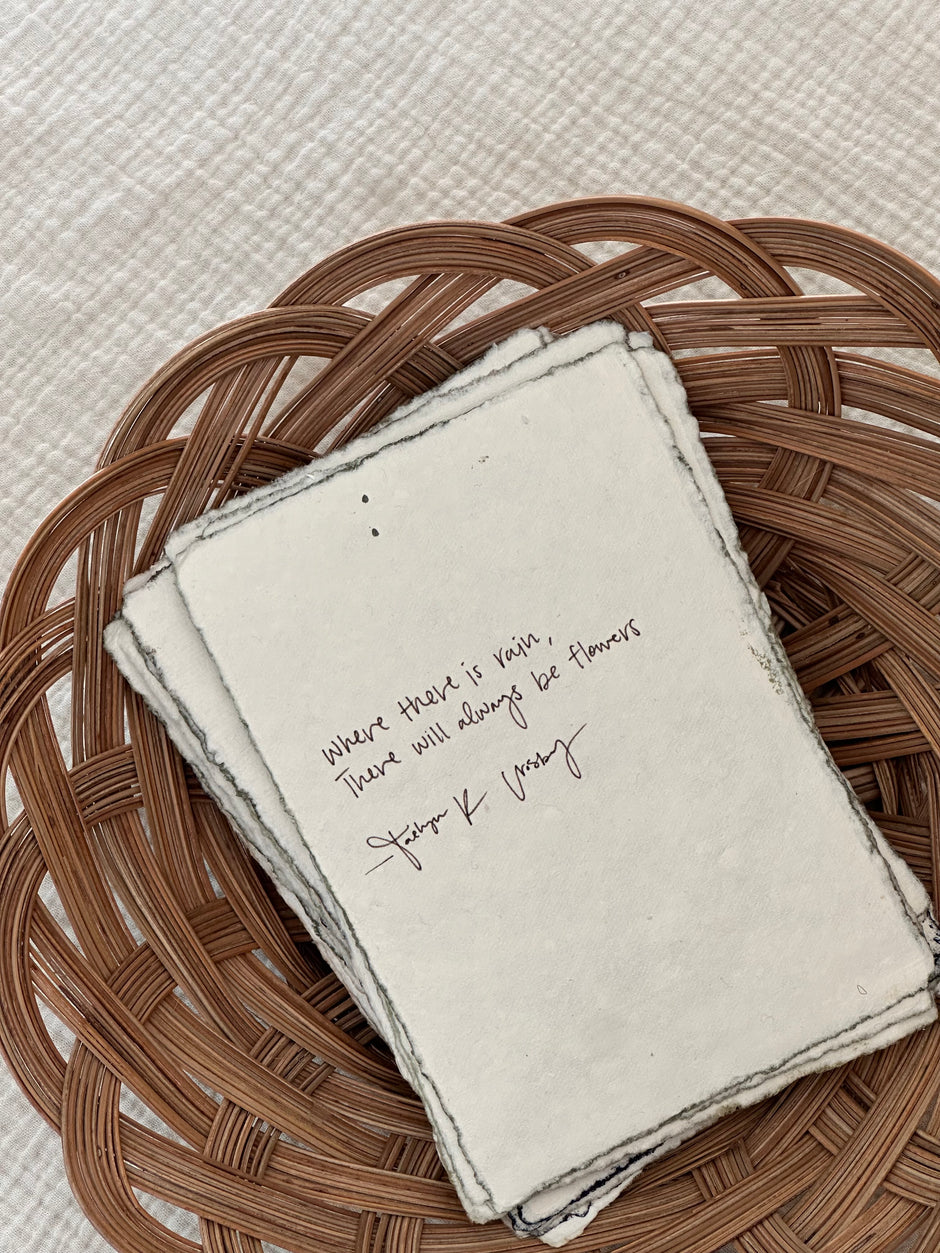 Where there is rain,
There will always be flowers
K